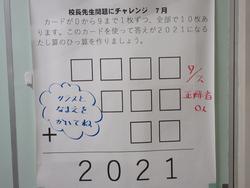 校長先生問題にチャレンジ　7月
カードが0から9まで1枚ずつ、全部で10枚あ
ります。このカードを使って答えが2021になる
たし算のひっ算を作りましょう。
正解者
0人
なまえを
かいてね
+
2021